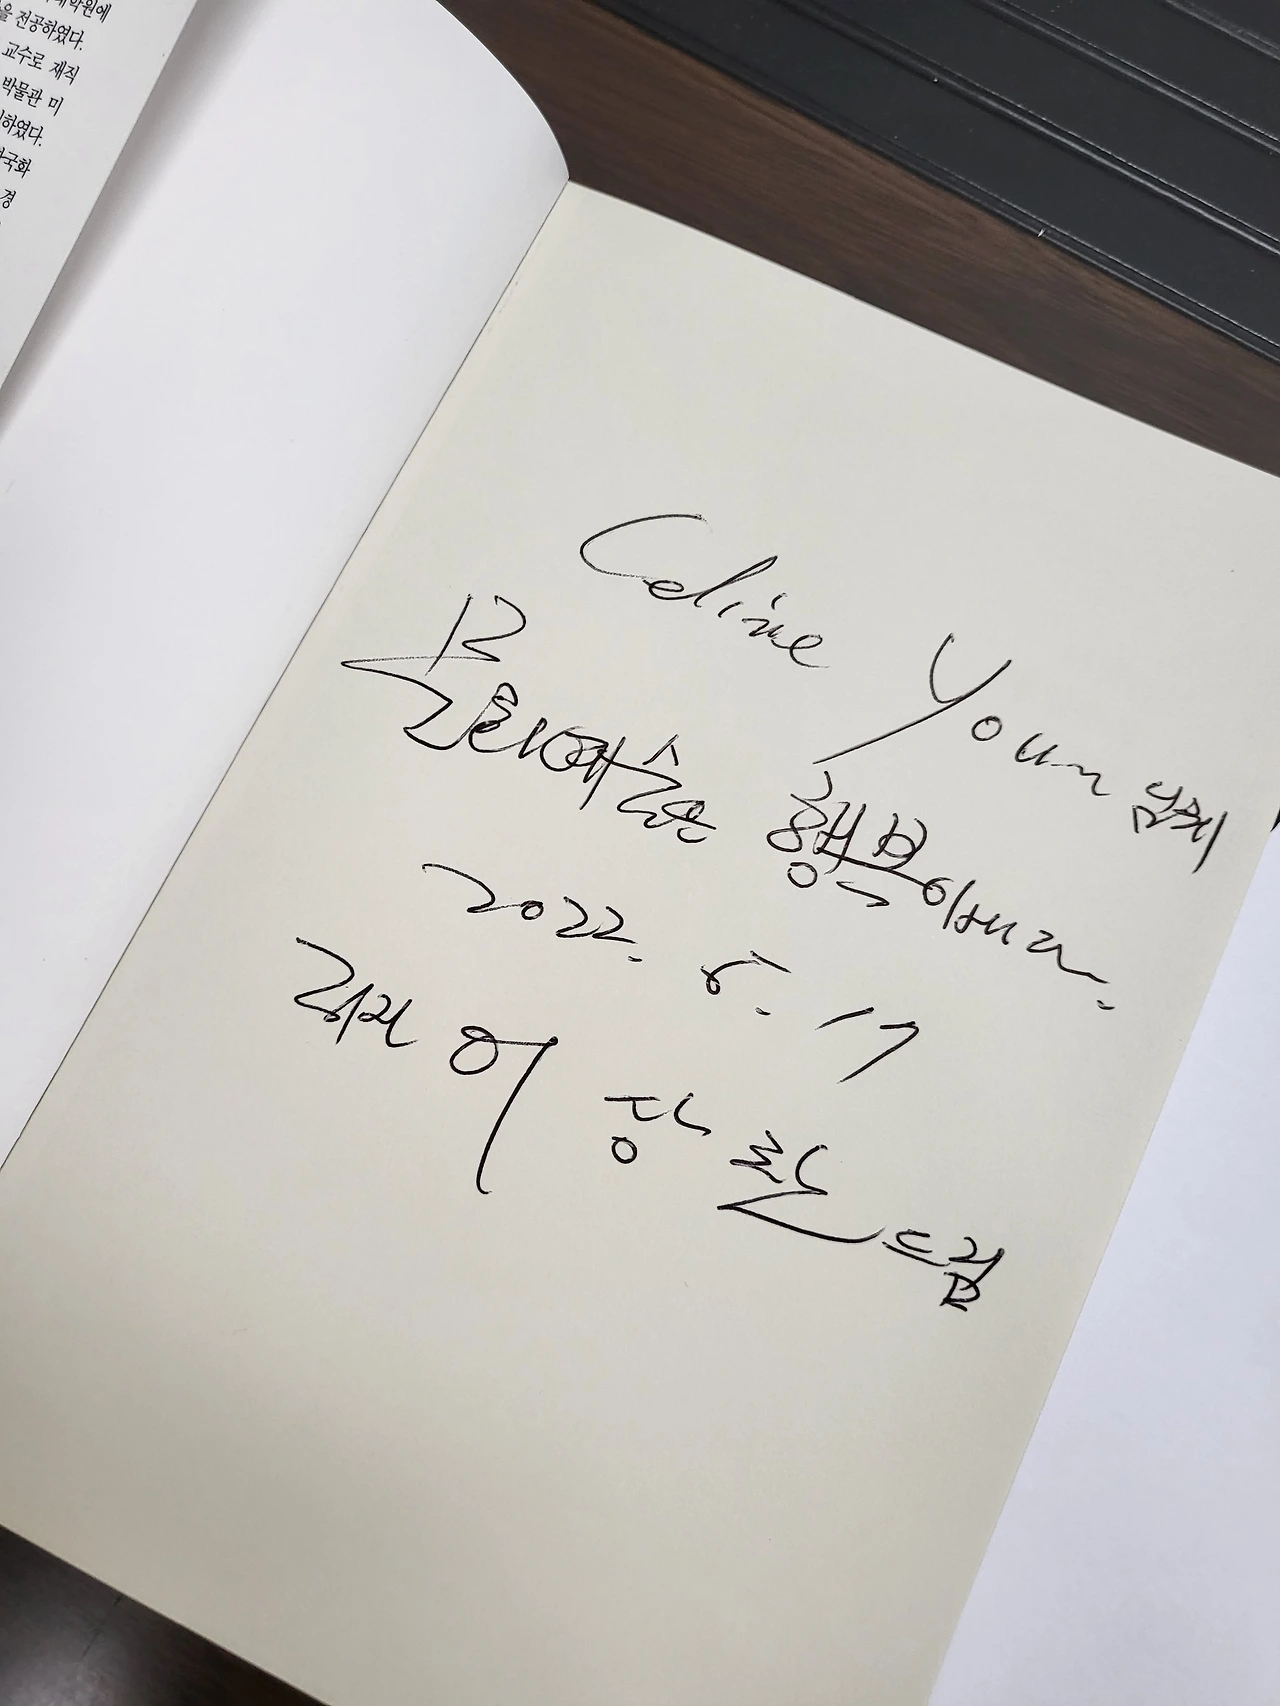 대학원에
을 전공하였다.
교수로 재직
박물관 미
하였다.
한국화
경
Celine Youn 님께
문화예술은 행복이어라.
2022. 5. 17
저자 이 장 훈 드림